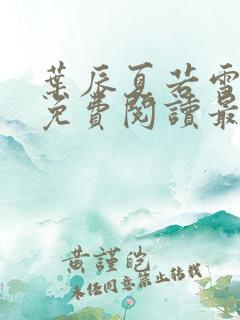 葉辰夏若雪
免費閱讀最
黄謹皑
未经同意禁止转载